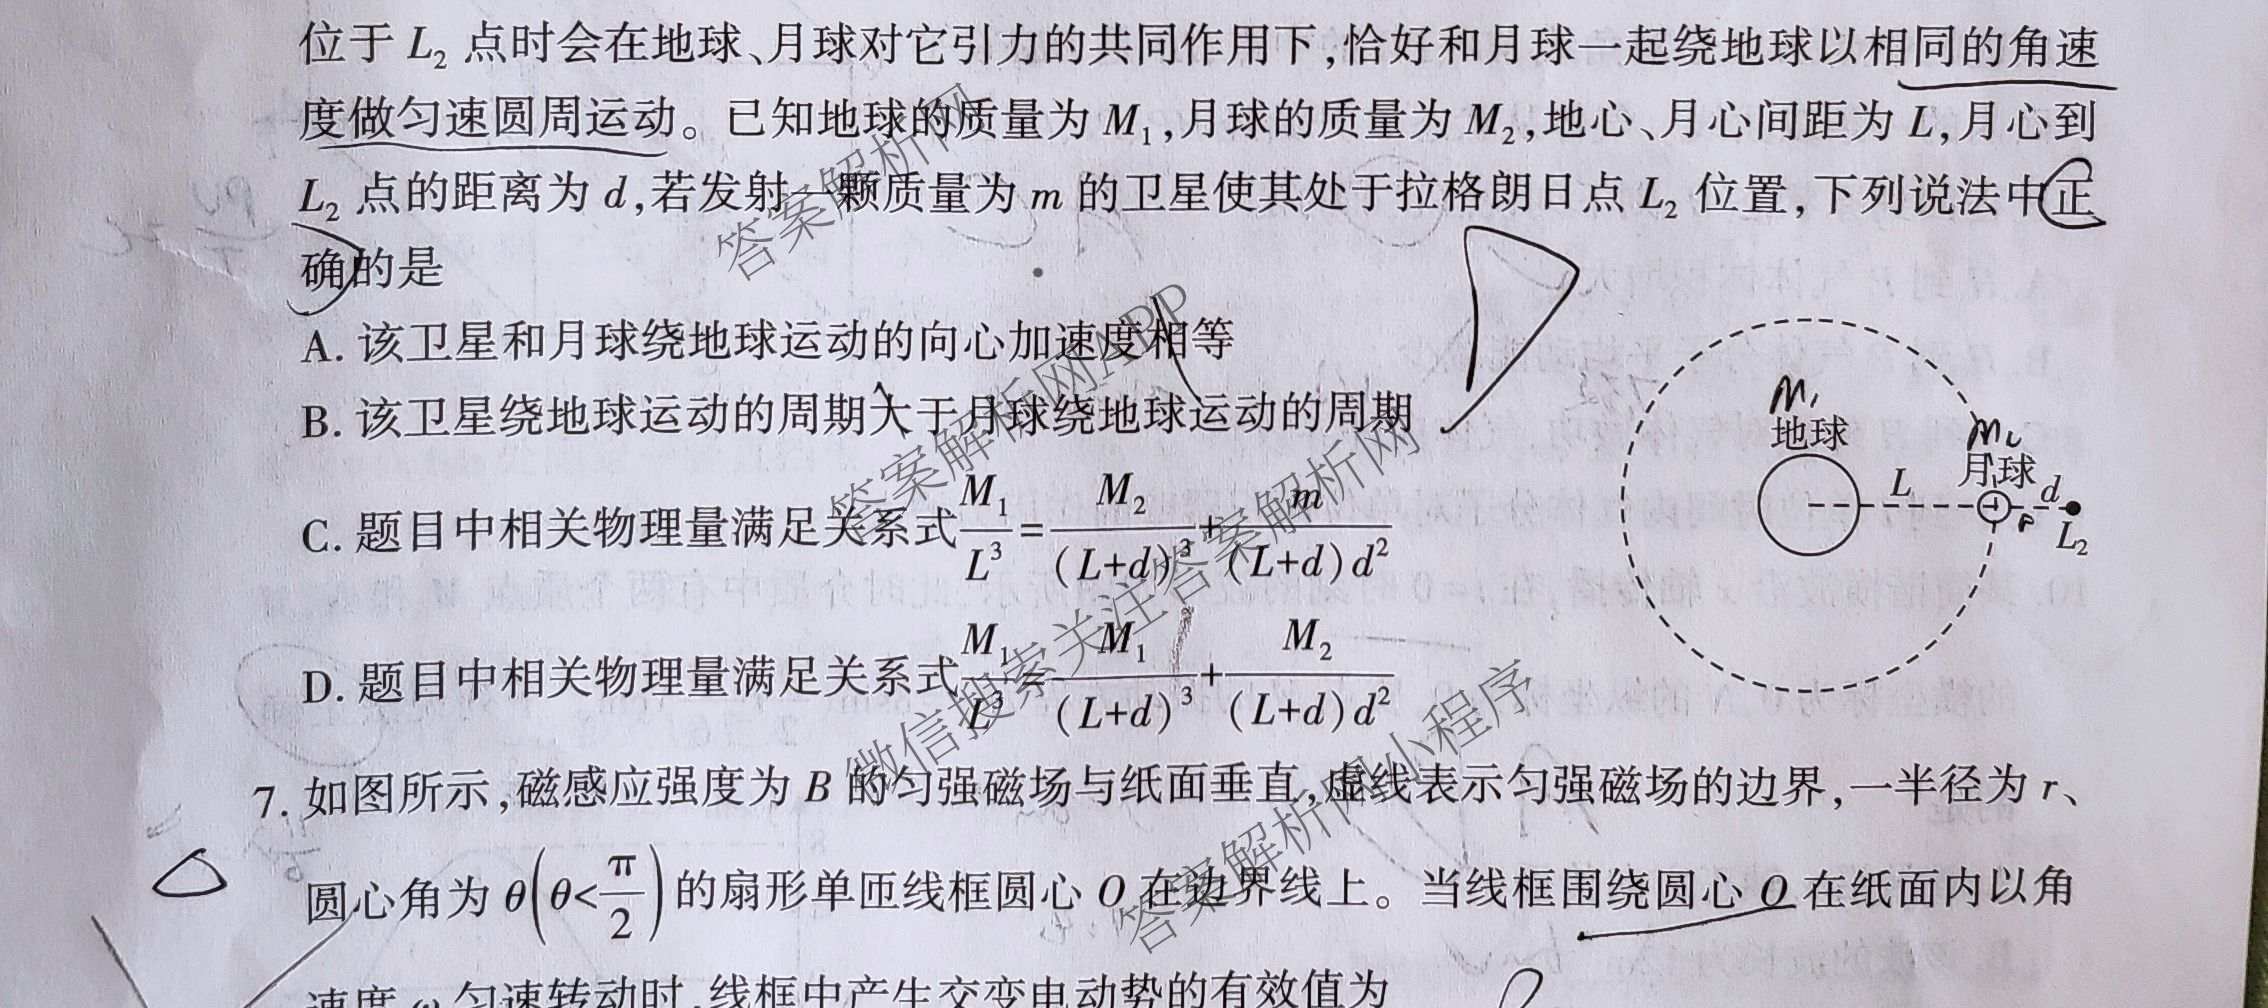 位于 L₂ 点时会在地球、月球对它引力的共同作用下,恰好和月球一起绕地球以相同的角速
度做匀速圆周运动。已知地球的质量为 M₁,月球的质量为 M₂,地心、月心间距为 L,月心到
L₂ 点的距离为 d,若发射一颗质量为 m 的卫星使其处于拉格朗日点 L₂ 位置,下列说法中正
确的是
A. 该卫星和月球绕地球运动的向心加速度相等
B. 该卫星绕地球运动的周期大于月球绕地球运动的周期
C. 题目中相关物理量满足关系式 M₁/L³ = M₂/(L+d)³ + m/((L+d)d²)
D. 题目中相关物理量满足关系式 M₁/L³ = M₁/(L+d)³ + M₂/((L+d)d²)
M₁
地球
M₂
月球
L
d
L₂
7. 如图所示,磁感应强度为 B 的匀强磁场与纸面垂直,虚线表示匀强磁场的边界,一半径为 r、
圆心角为 θ(θ<π/2)的扇形单匝线框圆心 O 在边界线上。当线框围绕圆心 O 在纸面内以角
速度 ω 匀速转动时,线框中产生交变电动势的有效值为
答案解析网
答案解析网APP
微信搜索关注答案解析网
答案解析网小程序